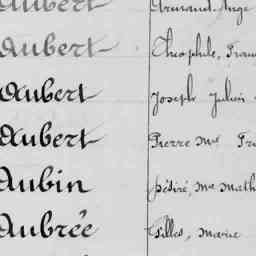 Aubert Armand, Ange
Aubert Théophile, Fran
Aubert Joseph Julien
Aubert Pierre Mie Fr
Aubin Désiré, Mie Math
Aubrée Gilles, Marie